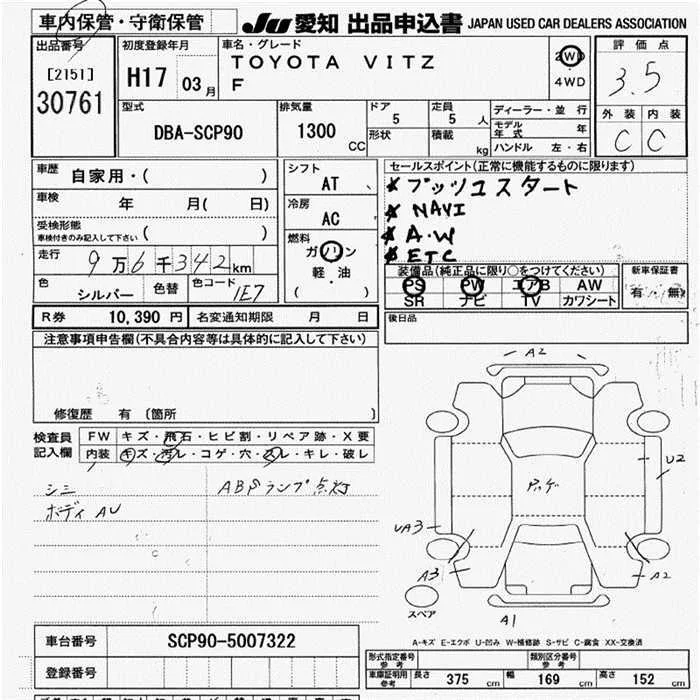 車内保管・守衛保管
JU 愛知 出品申込書 JAPAN USED CAR DEALERS ASSOCIATION
出品番号
[2151]
30761
初度登録年月
H17 03 月
車名・グレード
TOYOTA VITZ
F
2WD
4WD
評価点
3.5
外装 内装
C C
型式
DBA-SCP90
排気量
1300
CC
ドア
5
形状
定員
5 人
積載
kg
ディーラー・並 行
モデル年式 年
ハンドル 左・右
車歴
自家用・( )
車検
年 月( 日)
受検形態
車検付きのみ記入して下さい ( )
走行
9万6千342km
色
シルバー
色替
色コード
1E7
シフト
AT
冷房
AC
燃料
ガソリン
軽・油
( )
セールスポイント(正常に機能するものに限ります)
プッシュスタート
NAVI
A・W
ETC
装備品(純正品に限り○をつけてください)
PS PW エアB AW
SR ナビ TV カワシート
新車保証書
有・無
R券 10,390 円 名変通知期限 月 日
後日品
注意事項申告欄(不具合内容等は具体的に記入して下さい)
修復歴 有 〔箇所 〕
検査員
記入欄
FW キズ・飛石・ヒビ割・リペア跡・X要
内装 キズ・汚レ・コゲ・穴・スレ・キレ・破レ
シミ ABSランプ点灯
ボディ AU
A2
U2
UA3
A3
A2
A1
スペア
A-キズ E-エクボ U-凹み W-補修跡 S-サビ C-腐食 XX-交換済
車台番号 SCP90-5007322
登録番号
形式指定番号
参考
類別区分番号
参考
車庫証明用
参考
長さ 375 cm 幅 169 cm 高さ 152 cm